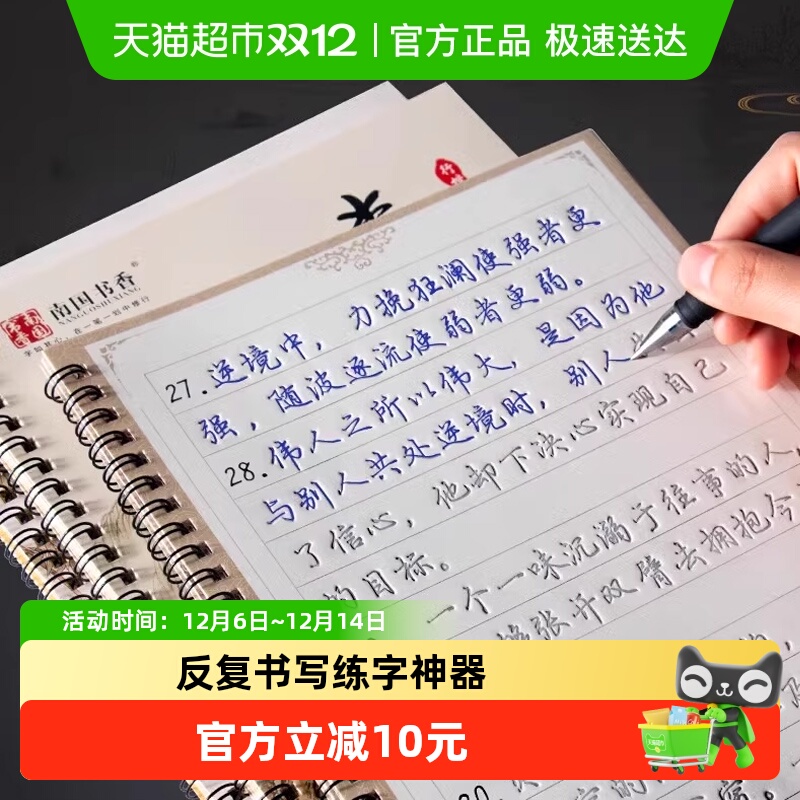 天猫超市双12 | 官方正品 极速送达
南国书香
NANGUOSHUXIANG
27.逆境中，力挽狂澜使强者更
强，随波逐流使弱者更弱。
28.伟人之所以伟大，是因为他
与别人共处逆境时，别人
了信心，他却下决心实现自己
的目标。
一个一味沉溺于往事的人，
张开双臂去拥抱今
活动时间：12月6日~12月14日
反复书写练字神器
官方立减10元
天猫超市